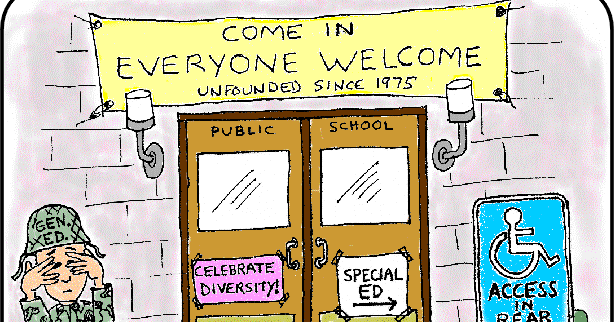 COME IN
EVERYONE WELCOME
UNFOUNDED SINCE 1975
PUBLIC SCHOOL
GEN.
ED.
CELEBRATE
DIVERSITY!
SPECIAL
ED
ACCESS
IN
REAR